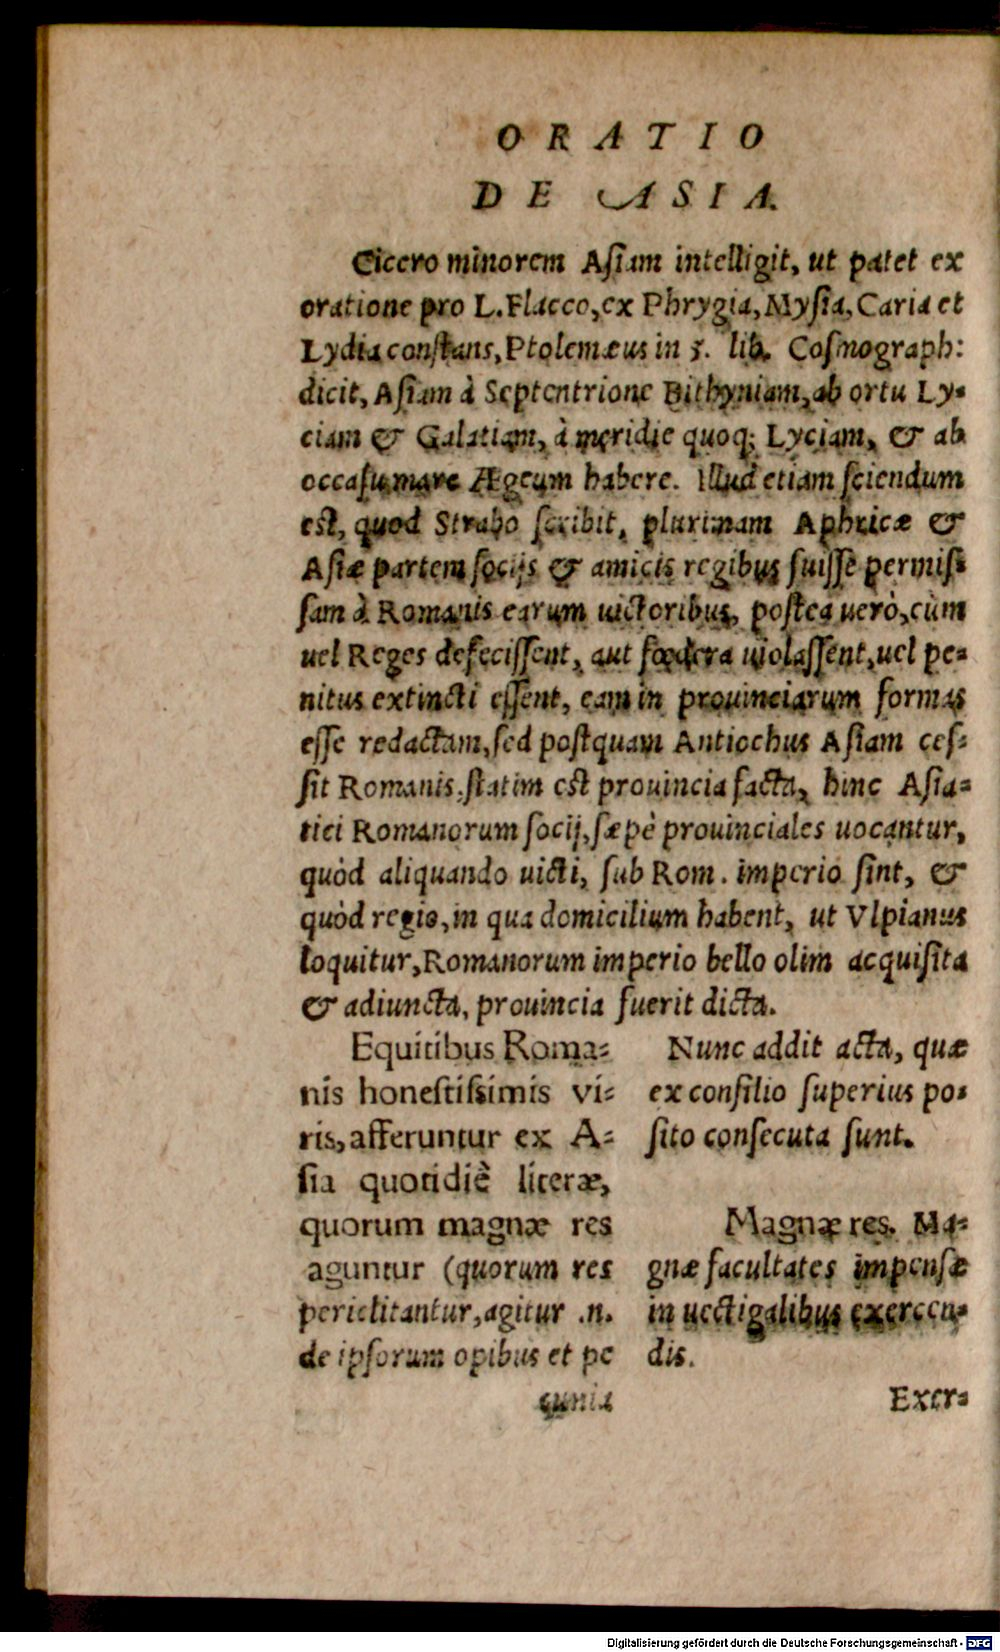 ORATIO
DE ASIA.
Cicero minorem Asiam intelligit, ut patet ex
oratione pro L. Flacco, ex Phrygia, Mysia, Caria et
Lydia constans, Ptolemæus in 5. lib. Cosmograph:
dicit, Asiam à Septentrione Bithyniam, ab ortu Ly-
ciam & Galatiam, à meridie quoq; Lyciam, & ab
occasu mare Ægeum habere. Illud etiam sciendum
est, quod Strabo scribit, plurimam Aphricæ &
Asiæ partem socijs & amicis regibus fuisse permis-
sam à Romanis earum uictoribus, postea uerò, cùm
uel Reges defecissent, aut fœdera uiolassent, uel pe-
nitus extincti essent, eam in prouinciarum formas
esse redactam, sed postquam Antiochus Asiam ces-
sit Romanis, statim est prouincia facta, hinc Asia-
tici Romanorum socij, sæpè prouinciales uocantur,
quòd aliquando uicti, sub Rom. imperio sint, &
quòd regio, in qua domicilium habent, ut Vlpianus
loquitur, Romanorum imperio bello olim acquisita
& adiuncta, prouincia fuerit dicta.
Equitibus Roma-
nis honestissimis vi-
ris, afferuntur ex A-
sia quotidiè literæ,
quorum magnæ res
aguntur (quorum res
periclitantur, agitur .n.
de ipsorum opibus et pe
cunia
Nunc addit acta, quæ
ex consilio superius po-
sito consecuta sunt.
Magnæ res. Ma-
gnæ facultates impensæ
in uectigalibus exercen-
dis.
Exer-
Digitalisierung gefördert durch die Deutsche Forschungsgemeinschaft - DFG